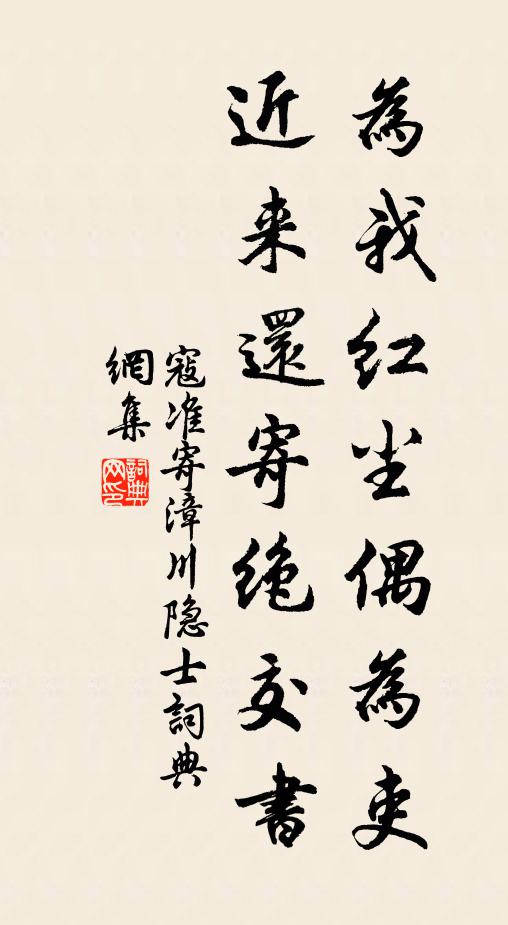 為我红尘偶為吏
近来還寄绝交書
寇准寄漳川隐士詞典
網集
詞典网印